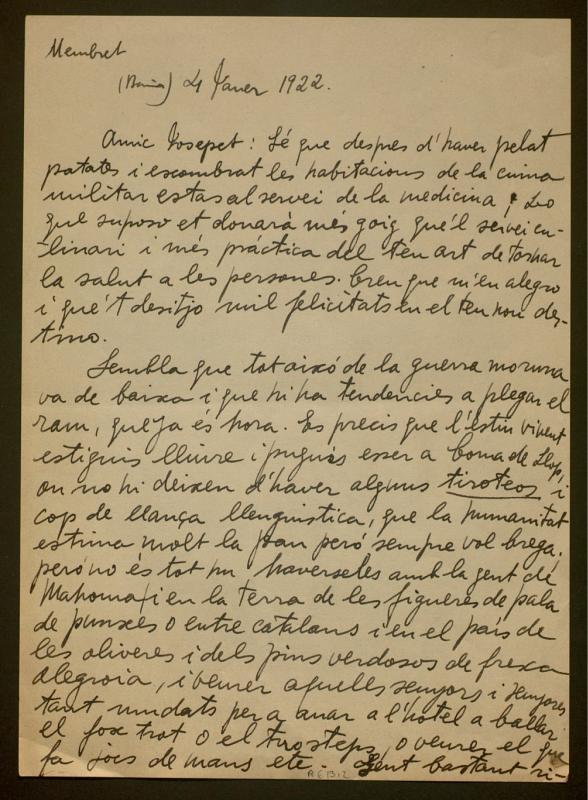 Membret
4 Janer 1922.
Amic Josepet: Sé que despres d'haver pelat
patates i escombrat les habitacions de la cuina
militar estas al servei de la medicina; Lo
que suposo et donará més goig que'l servei cu-
linari i més práctica del teu art de tornar
la salut a les persones. Creu que m'en alegro
i que't desitjo mil felicitats en el teu nou des-
tino.
Sembla que tot aixó de la guerra moruna
va de baixa i que hi ha tendencies a plegar el
ram, que ja és hora. Es precis que l'estiu vinent
estiguis lliure i puguis esser a Coma de
on no hi deixen d'haver alguns tiroteos i
cop de llança llenguistica, que la humanitat
estima molt la pau peró sempre vol brega.
peró no és tot hu haverseles amb la gent de
Mahoma i en la terra de les figueres de pala
de punxes o entre catalans i en el país de
les oliveres i dels pins verdosos de frexa
alegroia, i veurer aquells senyors i senyores
tant mudats per a anar a l'hotel a ballar
el fox trot o el tuosteps, o veurer el que
fa jocs de mans etc. Gent bastant ri-
R 613,2